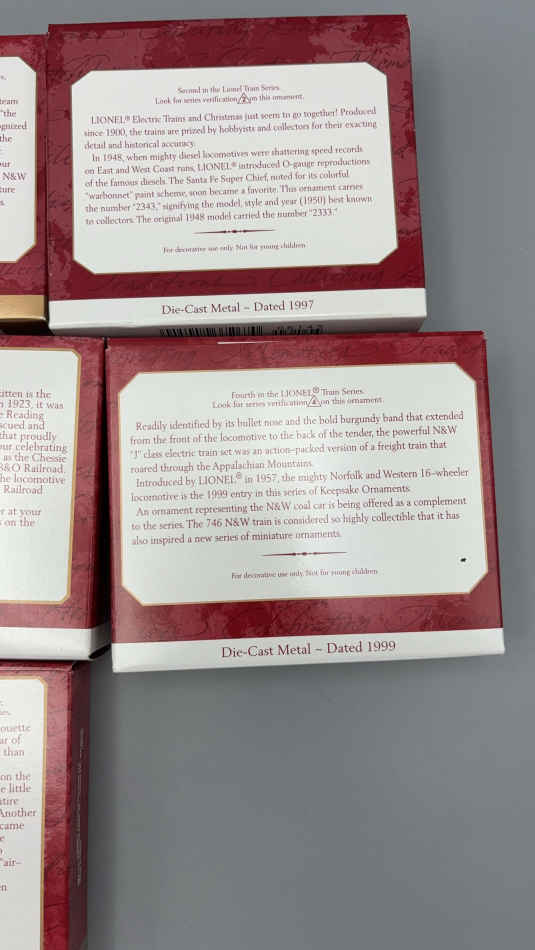 Second in the Lionel Train Series.
Look for series verification 2 on this ornament.
LIONEL® Electric Trains and Christmas just seem to go together! Produced
since 1900, the trains are prized by hobbyists and collectors for their exacting
detail and historical accuracy.
In 1948, when mighty diesel locomotives were shattering speed records
on East and West Coast runs, LIONEL® introduced O-gauge reproductions
of the famous diesels. The Santa Fe Super Chief, noted for its colorful
"warbonnet" paint scheme, soon became a favorite. This ornament carries
the number "2343," signifying the model, style and year (1950) best known
to collectors. The original 1948 model carried the number "2333."
For decorative use only. Not for young children.
Die-Cast Metal ~ Dated 1997
team
"the
ognized
the
our
N&W
ture
s.
Fourth in the LIONEL® Train Series.
Look for series verification 4 on this ornament.
Readily identified by its bullet nose and the bold burgundy band that extended
from the front of the locomotive to the back of the tender, the powerful N&W
"J" class electric train set was an action-packed version of a freight train that
roared through the Appalachian Mountains.
Introduced by LIONEL® in 1957, the mighty Norfolk and Western 16-wheeler
locomotive is the 1999 entry in this series of Keepsake Ornaments.
An ornament representing the N&W coal car is being offered as a complement
to the series. The 746 N&W train is considered so highly collectible that it has
also inspired a new series of miniature ornaments.
For decorative use only. Not for young children.
Die-Cast Metal ~ Dated 1999
itten is the
n 1923, it was
e Reading
scued and
that proudly
our celebrating
as the Chessie
B&O Railroad.
he locomotive
Railroad
r at your
s on the
ouette
ar of
than
on the
e little
ntire
Another
came
e
"air-
en